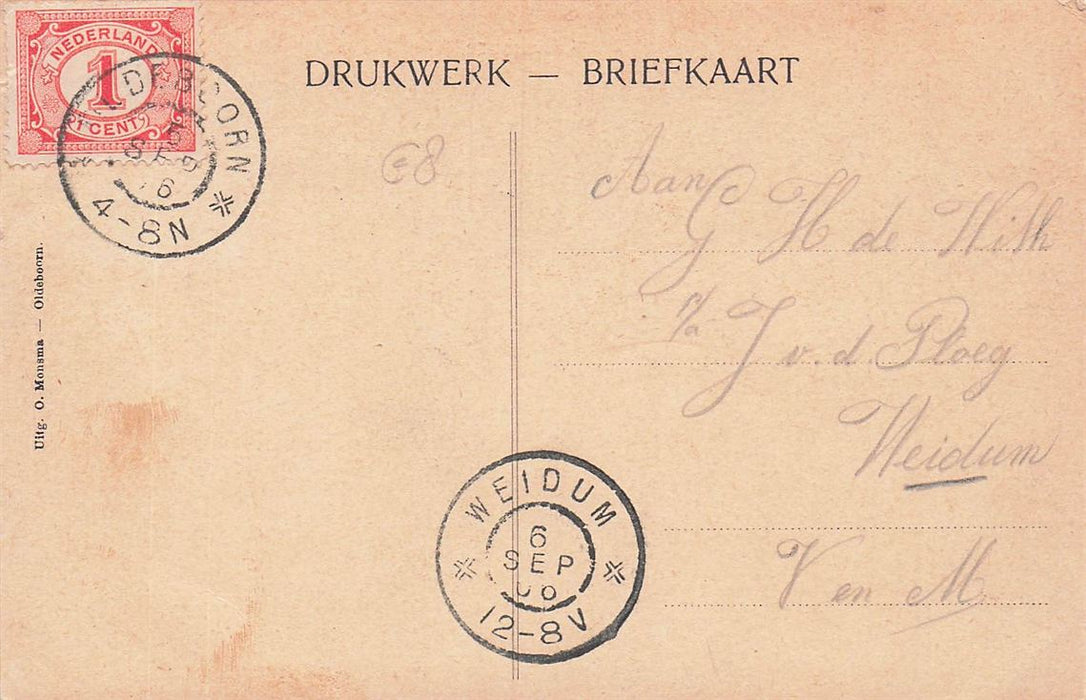 NEDERLAND
1
1 CENT
OLDEBOORN
5
SEP
6
4-8N
DRUKWERK — BRIEFKAART
€8
Aan
G H de With
p/a J v. d. Ploeg
Weidum
V en M
Uitg. O. Monsma — Oldeboorn.
WEIDUM
6
SEP
06
12-8V